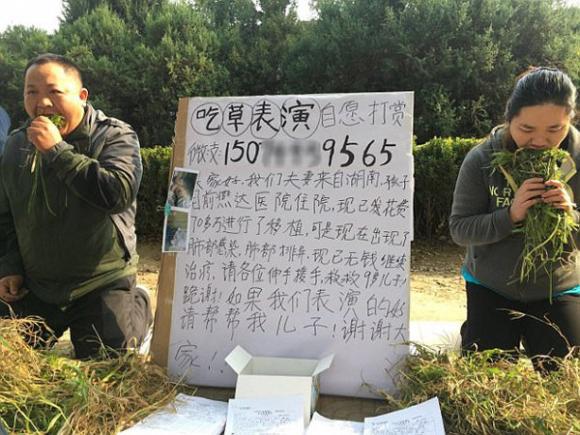 吃草表演自愿打赏
微读:150 9565
大家好,我们夫妻来自湖南,孩子
目前燃达医院住院,现已我花费
70多万进行了移植,可是现在出现了
肺部感染,肺部排异,现已无钱继续
治疗,请各位伸手援手,救救9岁儿子!
跪谢!如果我们表演的好
请帮帮我儿子!谢谢大
家!!
NORTH
FACE